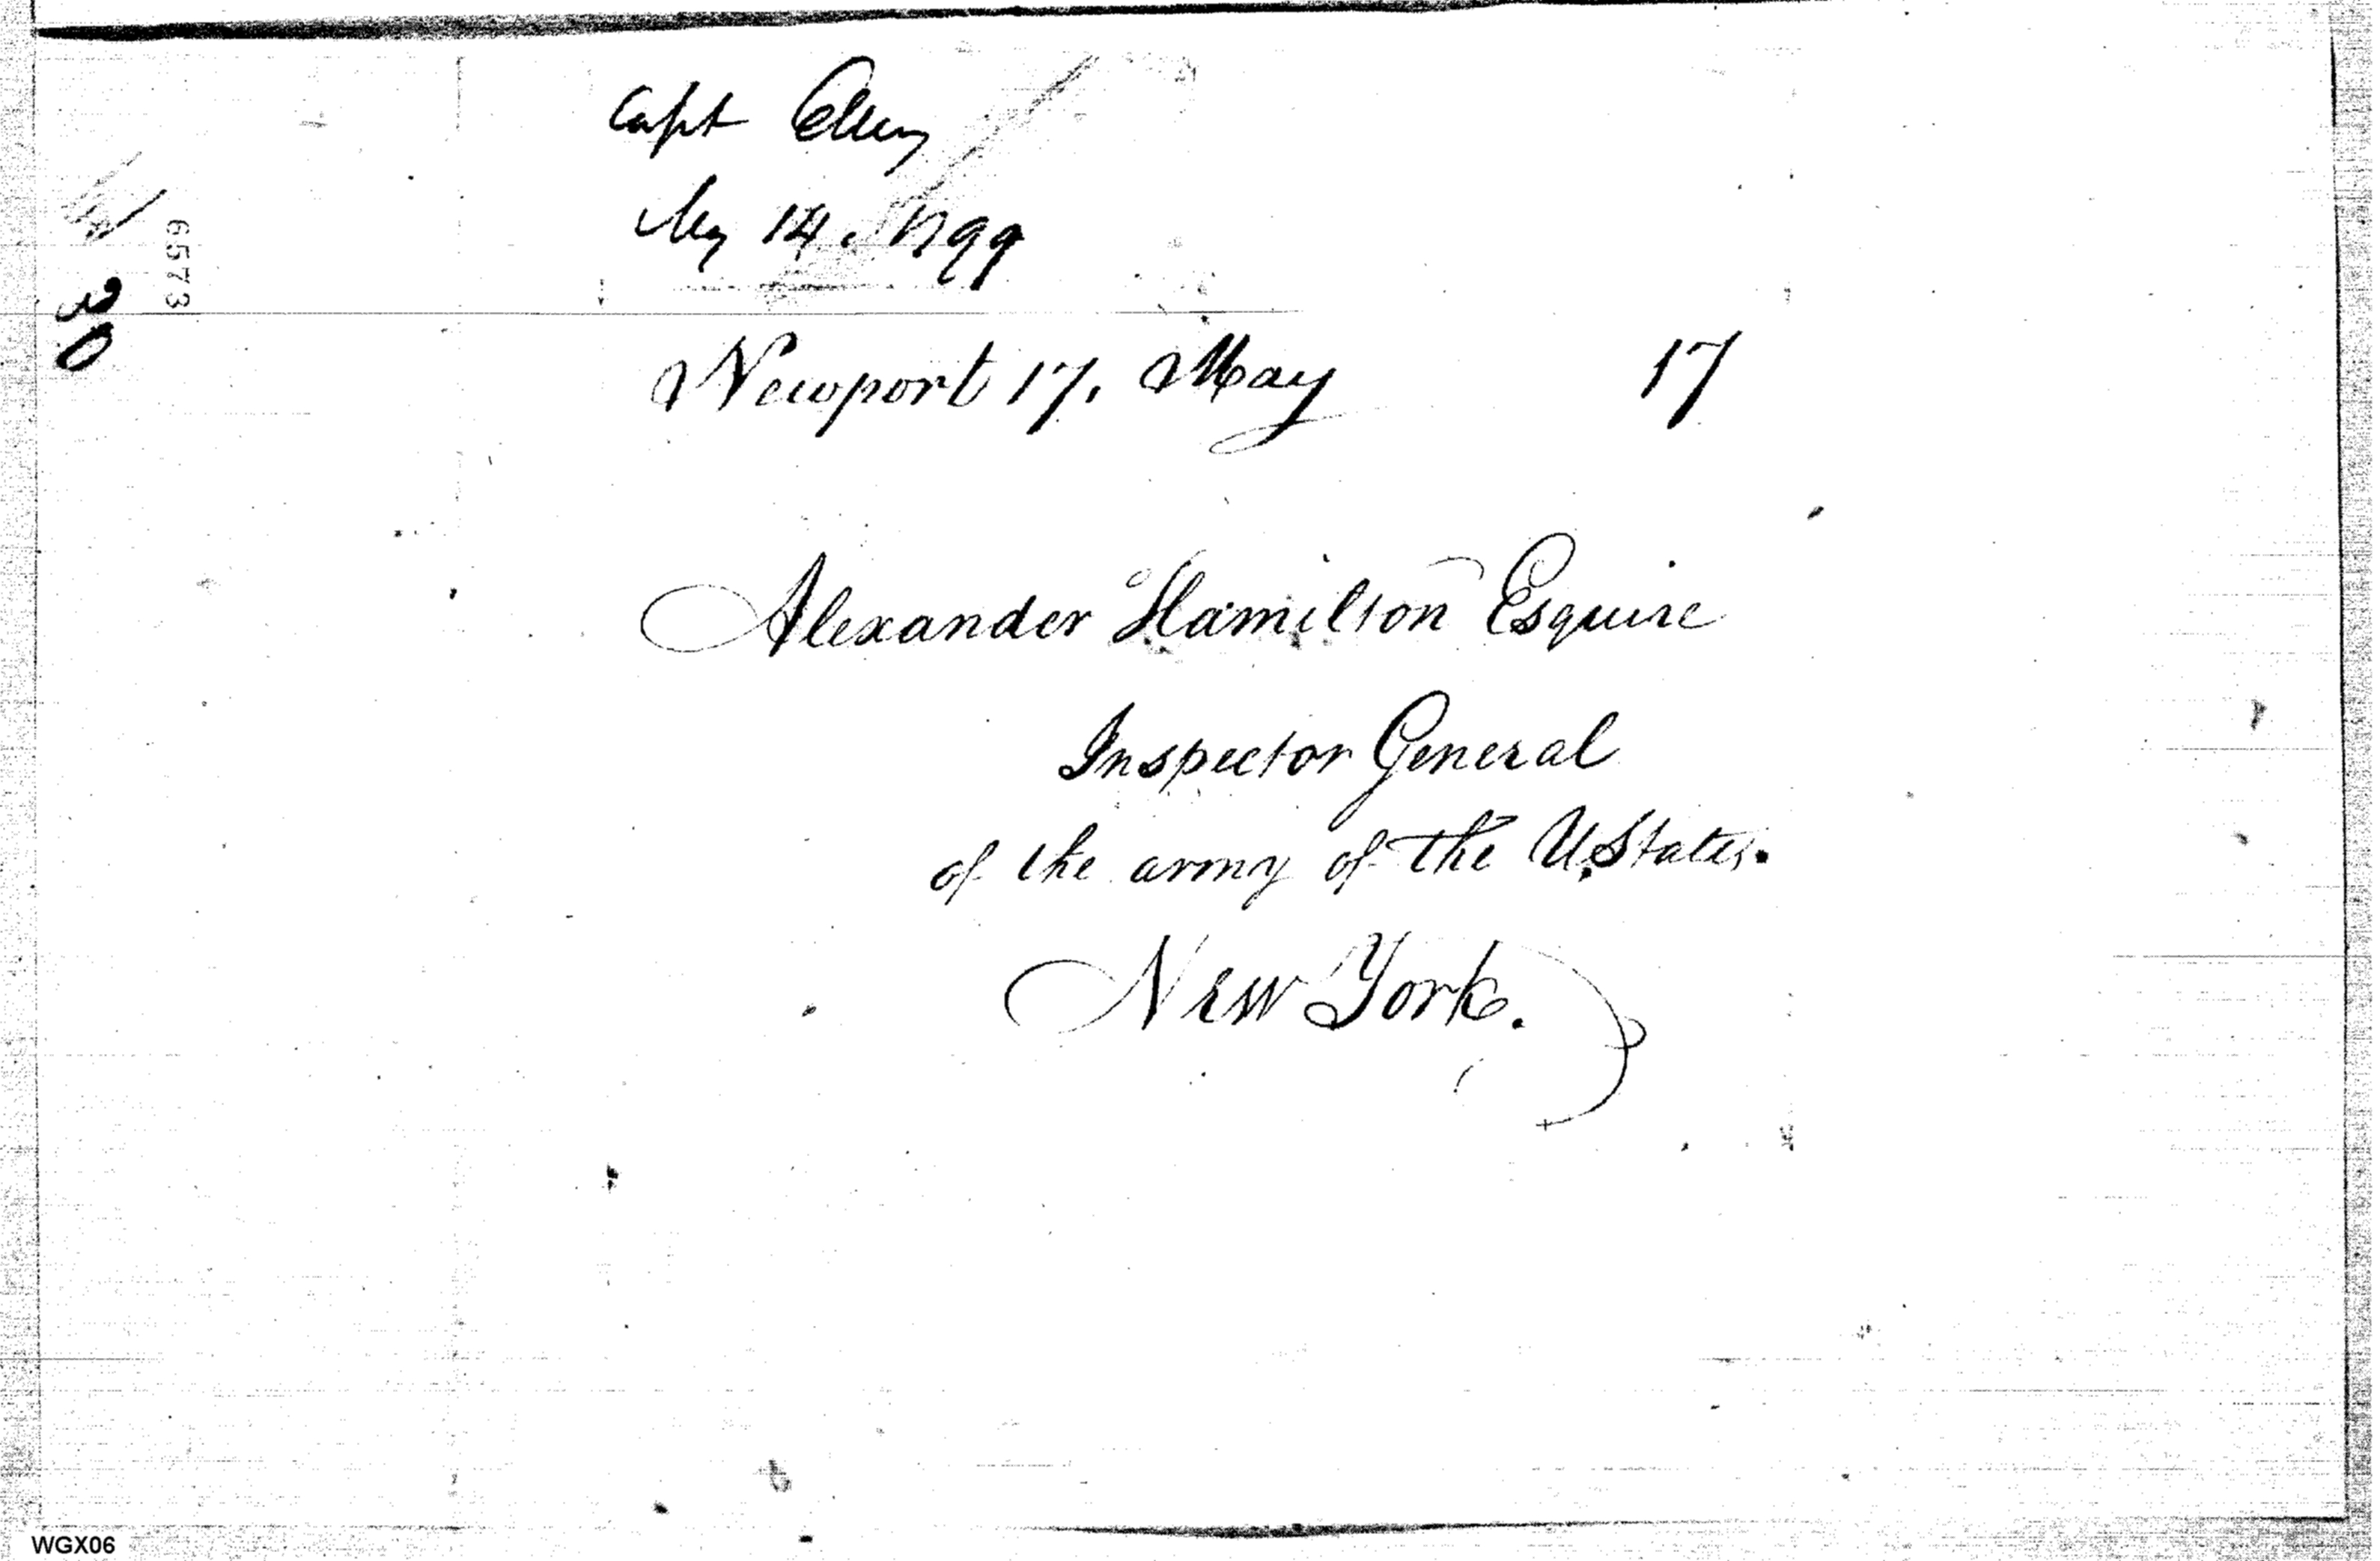 Capt Ellery
My 14. 1799
Newport 17. May 17
Alexander Hamilton Esquire
Inspector General
of the army of the U. States.
New York.
6573
30
WGX06